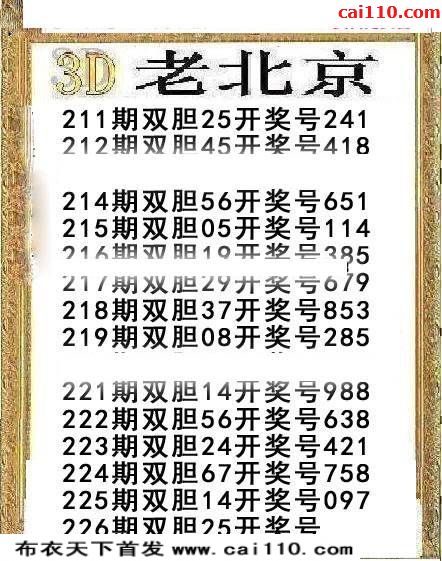 cai110.com
3D 老北京
211期双胆25开奖号241
212期双胆45开奖号418
214期双胆56开奖号651
215期双胆05开奖号114
216期双胆19开奖号385
217期双胆29开奖号679
218期双胆37开奖号853
219期双胆08开奖号285
221期双胆14开奖号988
222期双胆56开奖号638
223期双胆24开奖号421
224期双胆67开奖号758
225期双胆14开奖号097
226期双胆25开奖号
布衣天下首发 www.cai110.com